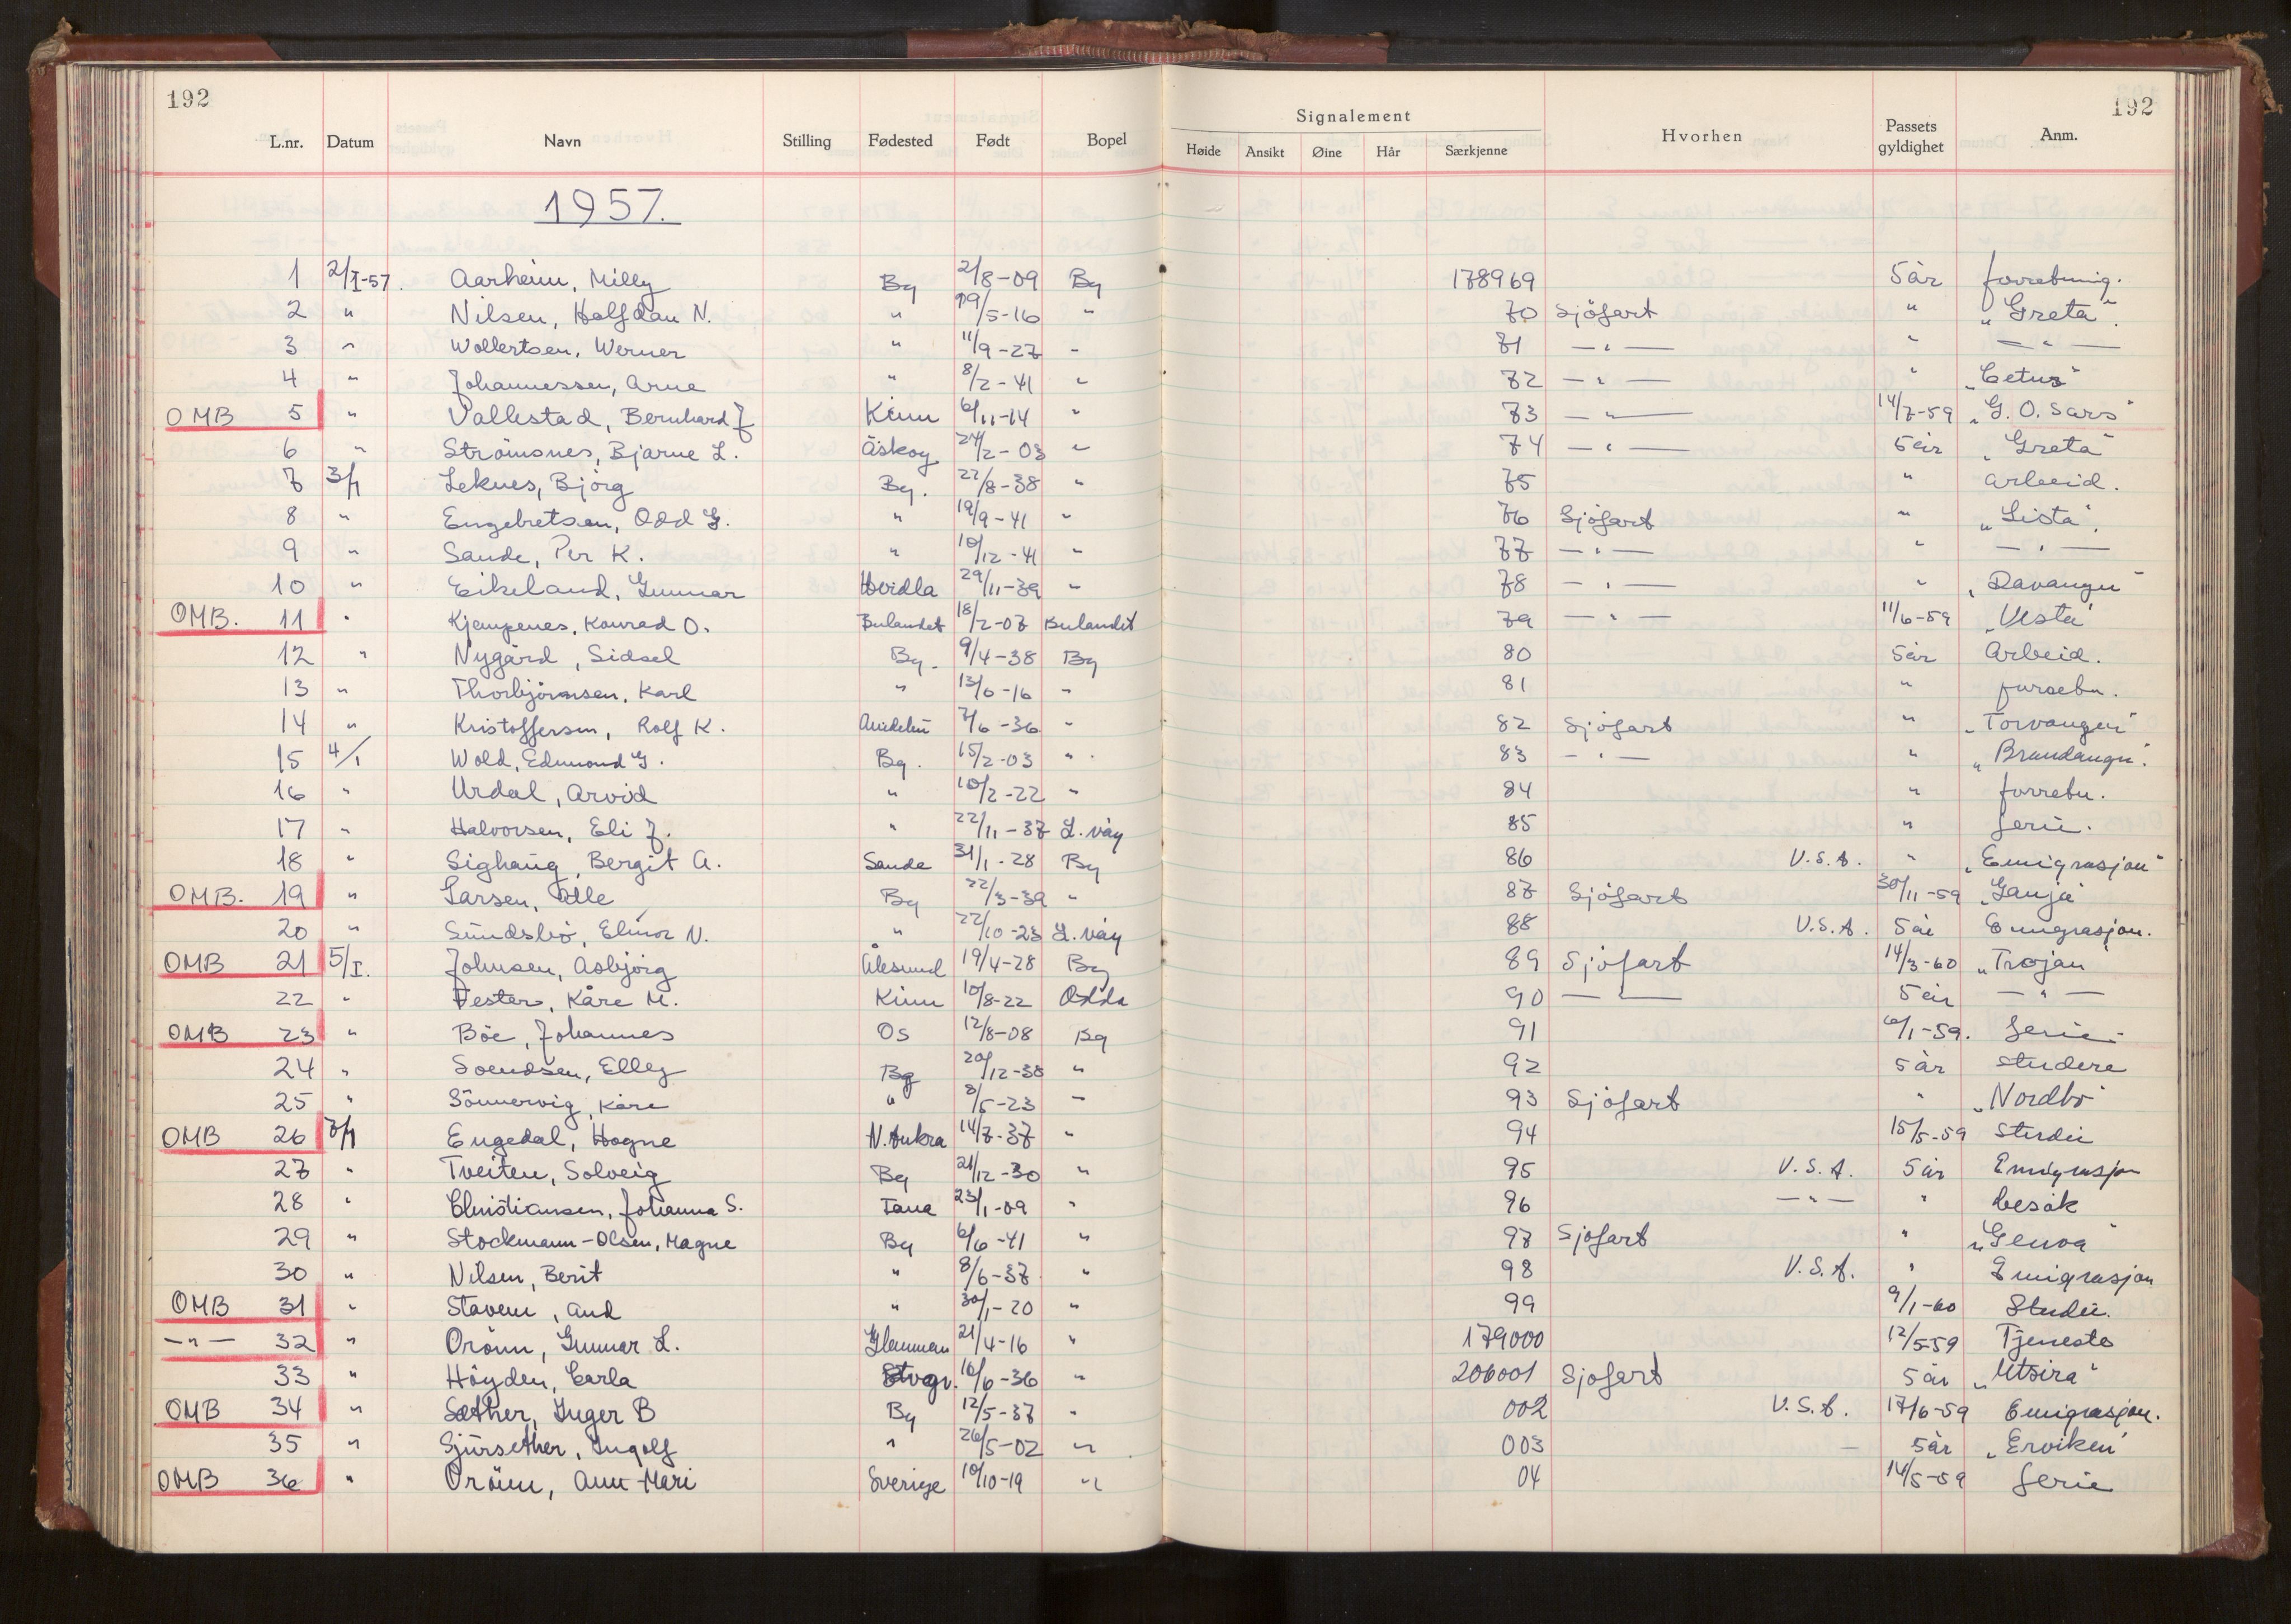 192 192
Signalement
L.nr. Datum Navn Stilling Fødested Født Bopel Høide Ansikt Øine Hår Særkjenne Hvorhen Passets gyldighet Anm.
1957.
1 2/I-57. Aarheim, Milly Bg 2/8-09 Bg 178969 5 år forretning.
2 " Nilsen, Halfdan N. " 19/5-16 " 70 Sjöfart " "Greta".
3 " Wollertsen, Werner " 11/9-27 " 71 — " — " — " —
4 " Johannessen, Arne " 8/2-41 " 72 — " — " "Cetus"
OMB 5 " Vallestad, Bernhard J Kinn 6/11-14 " 73 — " — 14/7-59 "G. O. Sars"
6 " Strömsnes, Bjarne L. Askøy 24/2-03 " 74 — " — 5 år "Greta"
7 3/1 Leknes, Björg Bg. 22/8-38 " 75 " arbeid.
8 " Engebretsen, Odd G. " 19/9-41 " 76 Sjöfart " "Lista".
9 " Sande, Per K. " 10/12-41 " 77 — " — " — " —
10 " Eikeland, Gunnar Herdla 29/11-39 " 78 — " — " "Davanger"
OMB. 11 " Kjempenes, Konrad O. Bulandet 18/2-07 Bulandet 79 — " — 11/6-59 "Vesta"
12 " Nygård, Sidsel Bg. 9/4-38 Bg 80 5 år Arbeid.
13 " Thorbjörnsen, Karl " 13/6-16 " 81 " forretn.
14 " Kristoffersen, Rolf K. 7/6-36 " 82 Sjöfart " "Torvanger"
15 4/1 Wold, Edmund G. Bg. 15/2-03 " 83 — " — " "Brandanger".
16 " Urdal, Arvid " 10/2-22 " 84 " forretn.
17 " Halvorsen, Eli J. " 22/11-37 L. våg 85 " ferie.
18 " Sighaug, Bergit A. Sande 31/1-28 Bg 86 U.S.A. " "Emigrasjon"
OMB. 19 " Larsen, Olle Bg 22/3-39 " 87 Sjöfart 30/11-59 "Ganja"
20 " Sundsbö, Elinor N. " 22/10-23 L. våg 88 U.S.A. 5 år Emigrasjon.
OMB 21 5/I. Johnsen, Asbjörg Ålesund 19/4-28 Bg 89 Sjöfart 14/3-60 "Trojan"
22 " Vester, Kåre M. Kinn 10/8-22 Odda 90 — " — 5 år — " —
OMB 23 " Böe, Johannes Os 12/8-08 Bg 91 6/1-59. Ferie.
24 " Svendsen, Elley Bg 20/12-38 " 92 5 år studere
25 " Sönnervig, Kåre " 8/5-23 " 93 Sjöfart " "Nordbö"
OMB 26 7/1 Engedal, Hogne N. Aukra 14/7-37 " 94 15/5-59 Studie
27 " Tveiten, Solveig Bg 21/12-30 " 95 U.S.A. 5 år Emigrasjon
28 " Christiansen, Johanna S. Tana 23/1-09 " 96 — " — " besøk
29 " Stockmann-Olsen, Magne Bg 6/6-41 " 97 Sjöfart " "Genoa"
30 " Nilsen, Berit " 8/6-37 " 98 U.S.A. " Emigrasjon
OMB 31 " Stavem, Aud " 30/1-20 " 99 9/1-60 Studie.
— " — 32 " Orönn, Gunnar L. 21/4-16 " 179000 12/5-59 Tjeneste
33 " Höyden, Carla Stvgr. 16/6-36 " 206001 Sjöfart 5 år "Utsira"
OMB 34 " Sæther, Inger B Bg 12/5-37 " 002 U.S.A. 17/6-59 Emigrasjon.
35 " Gjürsether, Ingolf " 26/5-02 " 003 — 5 år "Erviken"
OMB 36 " Orönn, Ann-Mari Sverige 10/10-19 " 04 14/5-59 Ferie